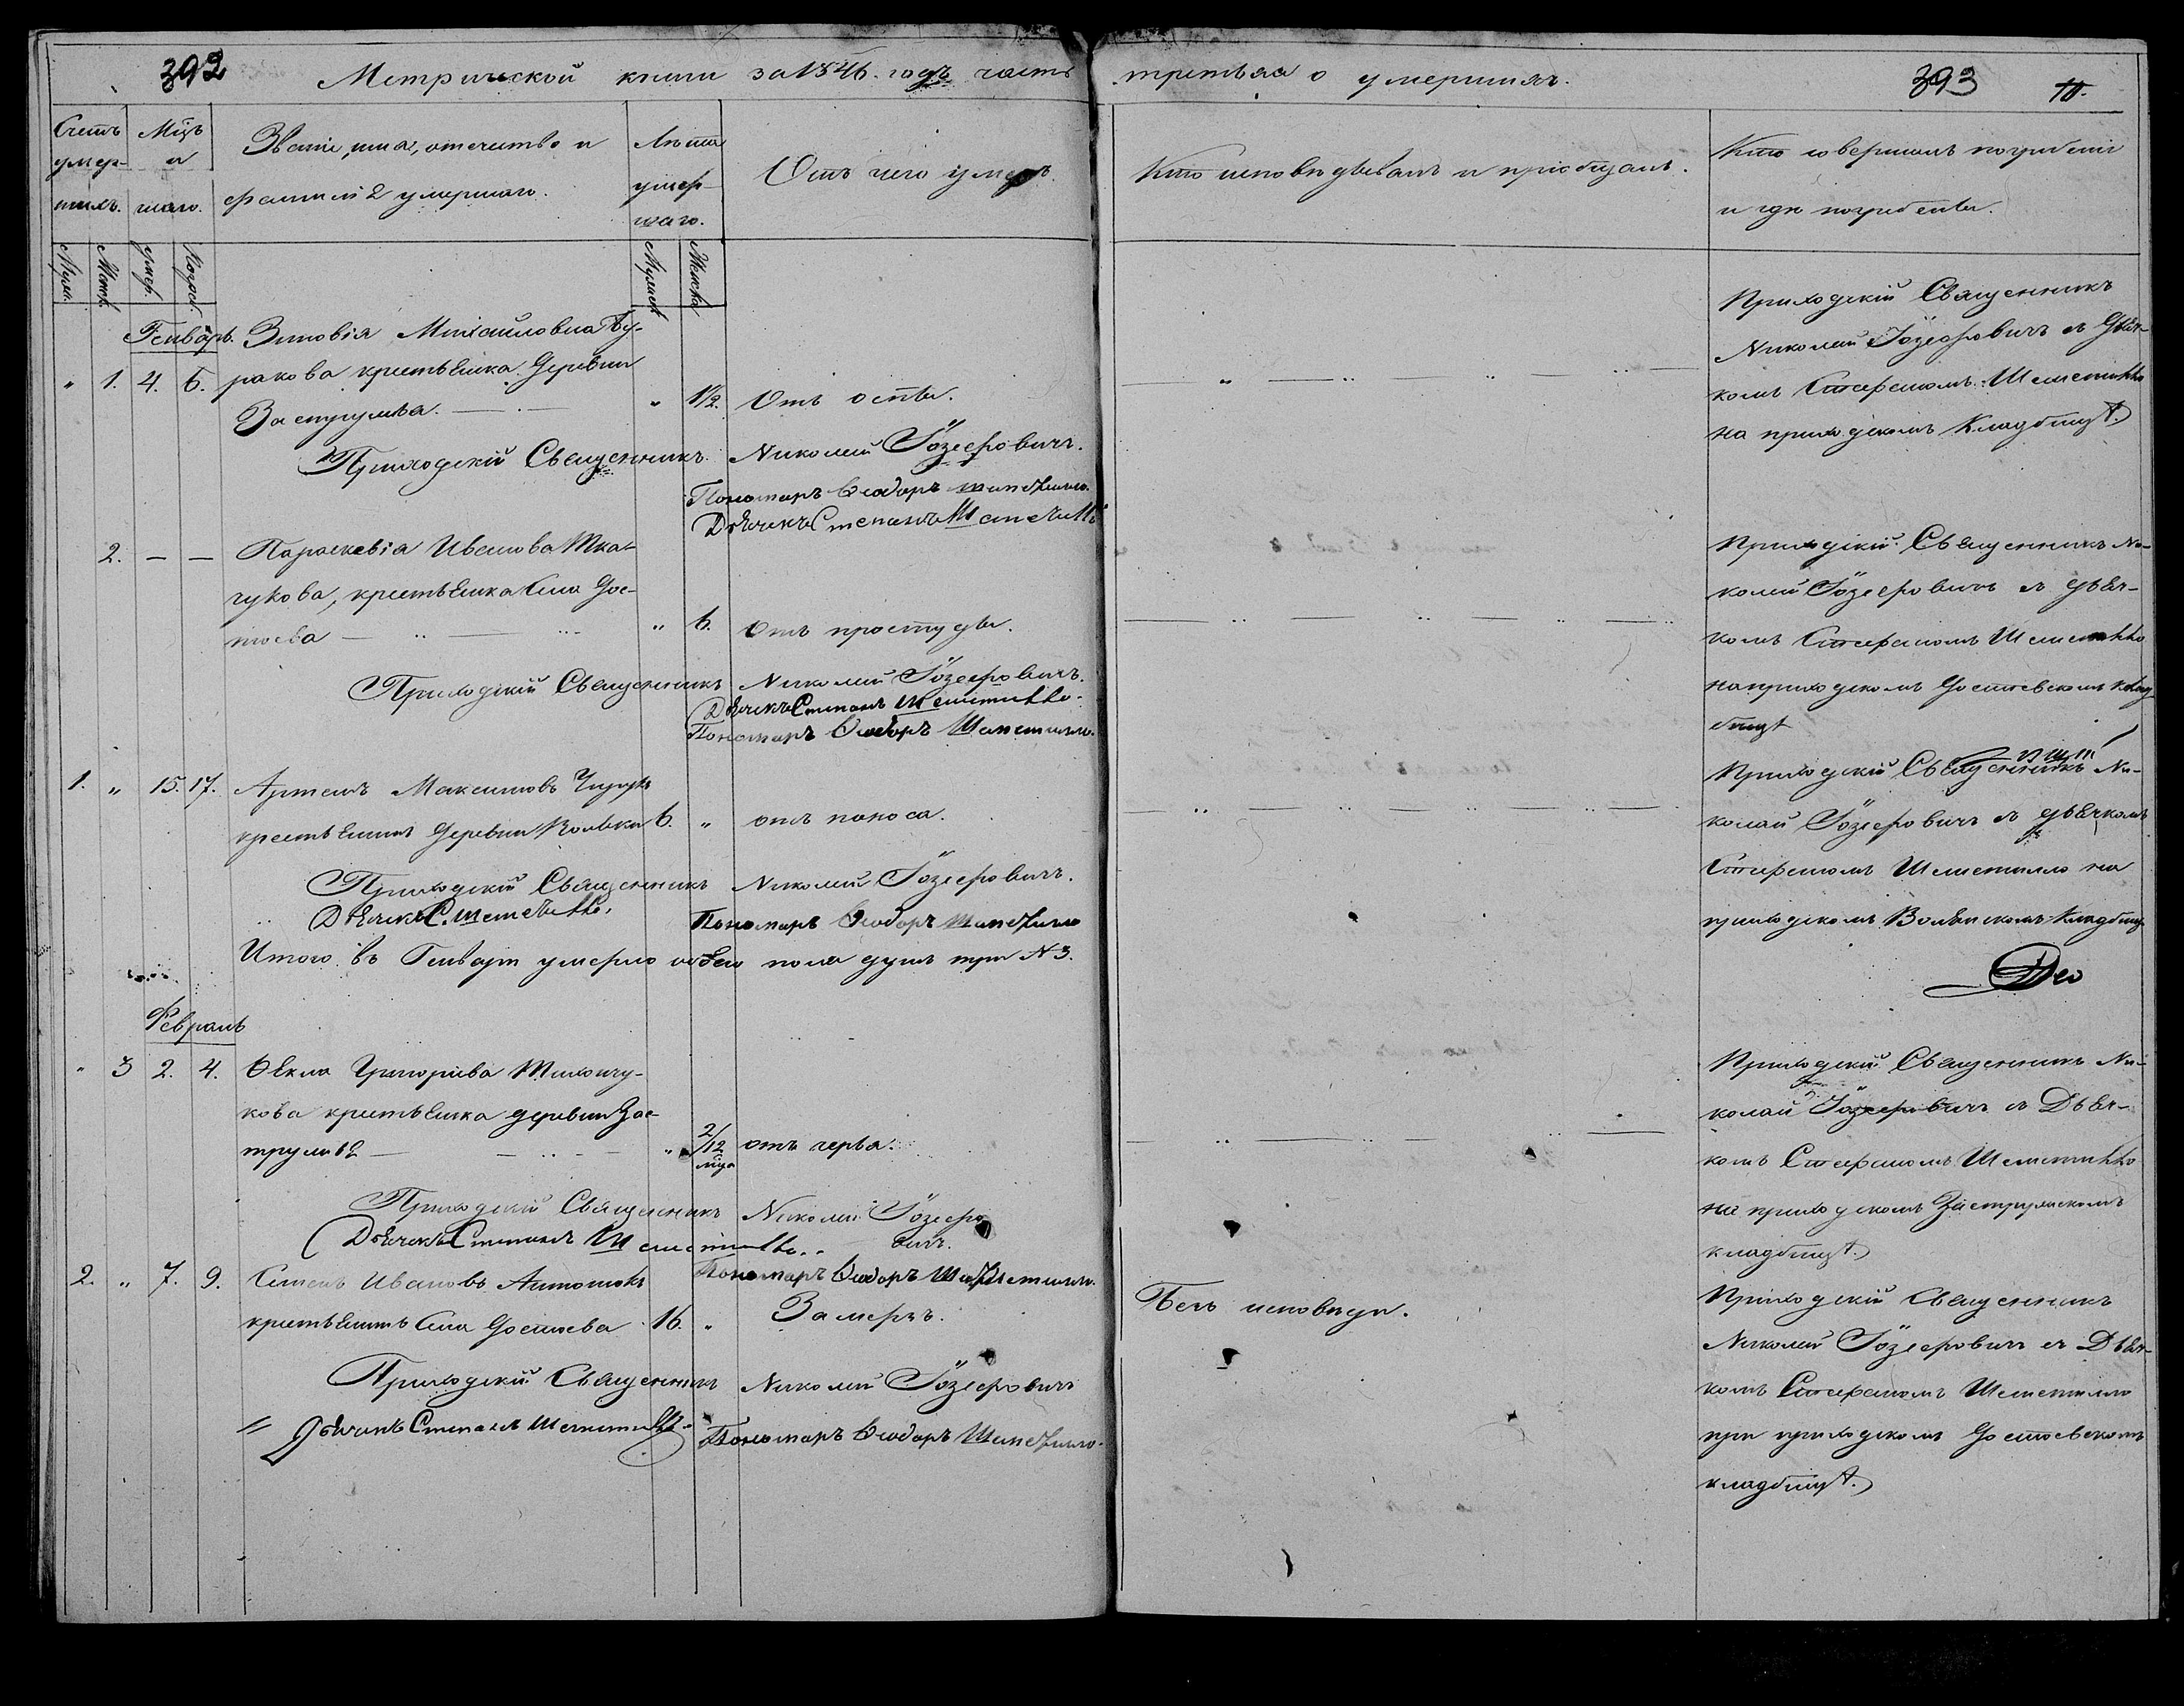 392
Метрической книги за 1846. годъ часть третьяя о умершихъ.
393
10.
Счетъ умер-шихъ.
Мцъ и число.
Званіе, имя, отечество и фамилія умершаго.
Лѣта умер-шаго.
Отъ чего умеръ.
Кто исповѣдывалъ и пріобщалъ.
Кто совершалъ погребеніе
и гдѣ погребены.
Муж.
Женс.
умер.
Погреб.
Мужеск
Женска
Генварь.
Зиновія Михайловна Бу-
" 1. 4. 6. ракова крестьянка Деревни
Заструмья.
" 1½. Отъ оспы.
Приходскій Священникъ
Николай Іозефовичъ с Дьяч-
комъ Стефаномъ Шеметилло
на приходскомъ Кладбищѣ.
Приходскій Священникъ Николай Іозефовичъ.
Пономаръ Ѳеодоръ Шеметилло.
Дьячекъ Степанъ Шеметилло
2. — — Параскевія Иванова Тка-
чукова, крестьянка Села Дос-
тоева
" 6. Отъ простуды.
Приходскій Священникъ Ни-
колай Іозефовичъ с дьяч-
комъ Стефаномъ Шеметилло
на приходскомъ Достоевскомъ клад
бищѣ
Приходскій Священникъ Николай Іозефовичъ.
Дьячекъ Степанъ Шеметилло.
Пономаръ Ѳеодоръ Шеметилло.
1. " 15. 17. Артемъ Максимовъ
крестьянинъ Деревни Вольки 6. " отъ поноса.
Приходскій Священникъ Ни-
колай Іозефовичъ с дьячкомъ
Стефаномъ Шеметилло на
приходскомъ Волянскомъ Кладбищ
Приходскій Священникъ Николай Іозефовичъ.
Дьячекъ С. Шеметилло.
Пономаръ Ѳеодоръ Шеметилло
Итого въ Генварѣ умерло обоего пола душъ три N 3.
Февраль
" 3 2. 4. Ѳекла Григориева Тихончу-
кова крестьянка деревни Зас-
трумья
" 2/12 мца отъ черва.
Приходскій Священникъ Ни-
колай Іозефовичъ с Дьяч-
комъ Стефаномъ Шеметилло
на приходскомъ Заструмскомъ
кладбищѣ.
Приходскій Священникъ Николай Іозефо
вичъ.
Дьячекъ Степанъ Шеметилло.
Пономаръ Ѳеодоръ Шеметилло.
2. " 7. 9. Семенъ Ивановъ Антонюкъ
крестьянинъ Села Достоева 16. " Замерзъ.
Безъ исповеди.
Приходскій Священникъ
Николай Іозефовичъ с Дьяч-
комъ Стефаномъ Шеметилло
при приходскомъ Достоевскомъ
кладбищѣ.
Приходскій Священникъ Николай Іозефовичъ
Дьячекъ Степанъ Шеметилло
Пономаръ Ѳеодоръ Шеметилло.